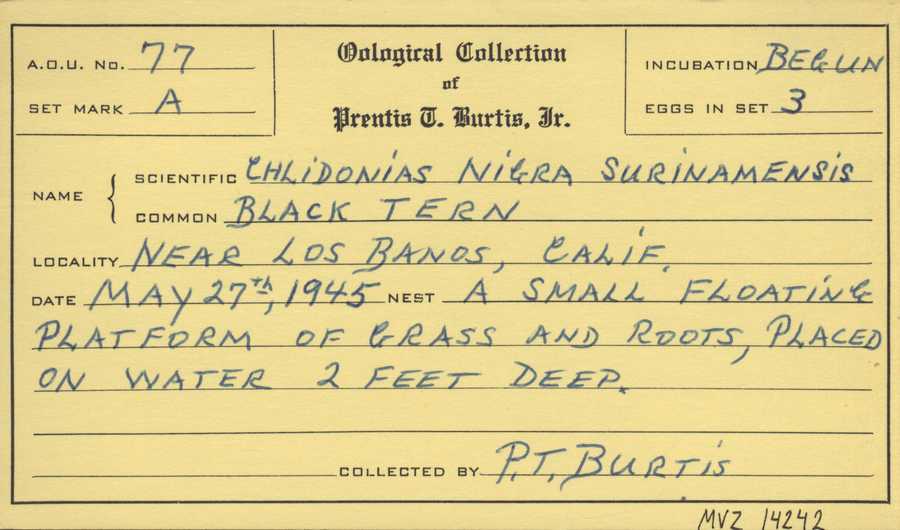 A.O.U. No. 77
SET MARK A
Oological Collection
of
Prentis T. Burtis, Jr.
INCUBATION BEGUN
EGGS IN SET 3
NAME { SCIENTIFIC CHLIDONIAS NIGRA SURINAMENSIS
COMMON BLACK TERN
LOCALITY NEAR LOS BANOS, CALIF.
DATE MAY 27th, 1945 NEST A SMALL FLOATING
PLATFORM OF GRASS AND ROOTS, PLACED
ON WATER 2 FEET DEEP.
COLLECTED BY P.T. BURTIS
MVZ 14242